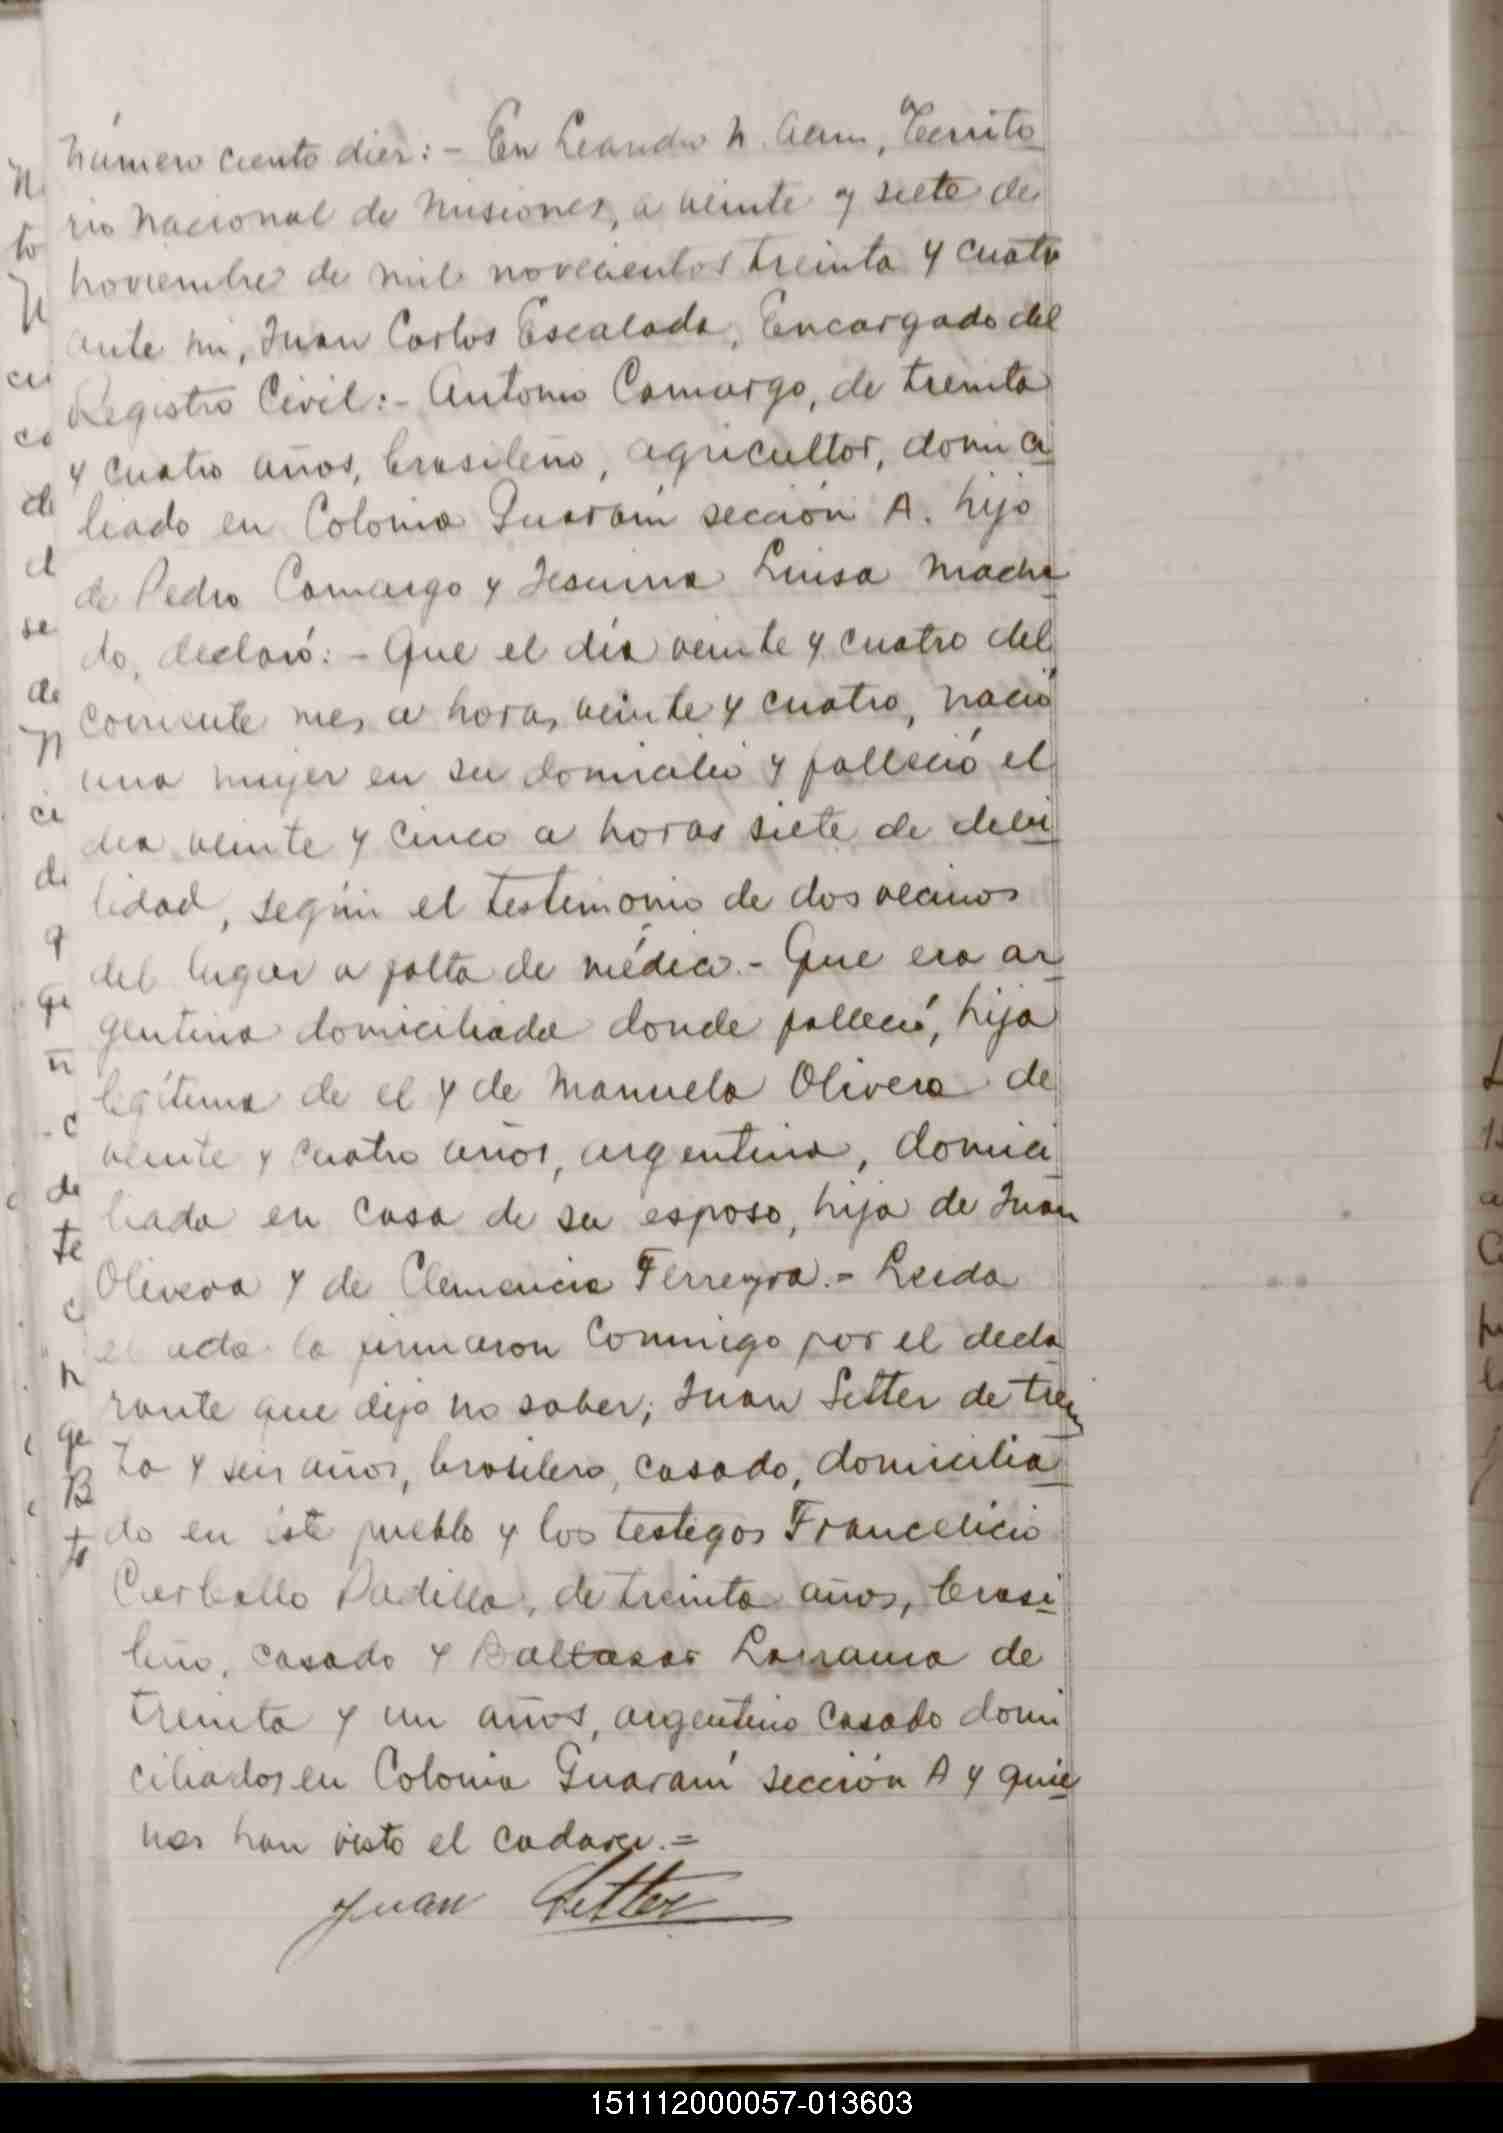 Número ciento diez: - En Leandro N. Alem, Territo
rio Nacional de Misiones, a veinte y siete de
noviembre de mil novecientos treinta y cuatro
ante mi, Juan Carlos Escalada, Encargado del
Registro Civil: - Antonio Camargo, de treinta
y cuatro años, brasileño, agricultor, domici
liado en Colonia Guaraní sección A. hijo
de Pedro Camargo y Luisa Macha
do, declaró: - Que el día veinte y cuatro del
corriente mes a horas veinte y cuatro, nació
una mujer en su domicilio y falleció el
dia veinte y cinco a horas siete de debi
lidad, según el testimonio de dos vecinos
del lugar a falta de médico. - Que era ar
gentina domiciliada donde falleció, hija
legítima de el y de Manuela Olivera de
veinte y cuatro años, argentina, domici
liada en casa de su esposo, hija de Juan
Olivera y de Clemencia Ferreyra. = Leida
el acta la firmaron conmigo por el decla
rante que dijo no saber; Juan Setter de trein
ta y seis años, brasilero, casado, domicilia
do en éste pueblo y los testigos Francelicio
Carballo Padilla, de treinta años, brasi
leño, casado y Baltasar de
treinta y un años, argentino casado domi
ciliados en Colonia Guaraní sección A y quie
nes han visto el cadaver. =
Juan Setter
N
to
N
ci
co
de
el
se
de
N
ci
de
q
qe
n
c
de
te
c
n
ge
B
to
151112000057-013603